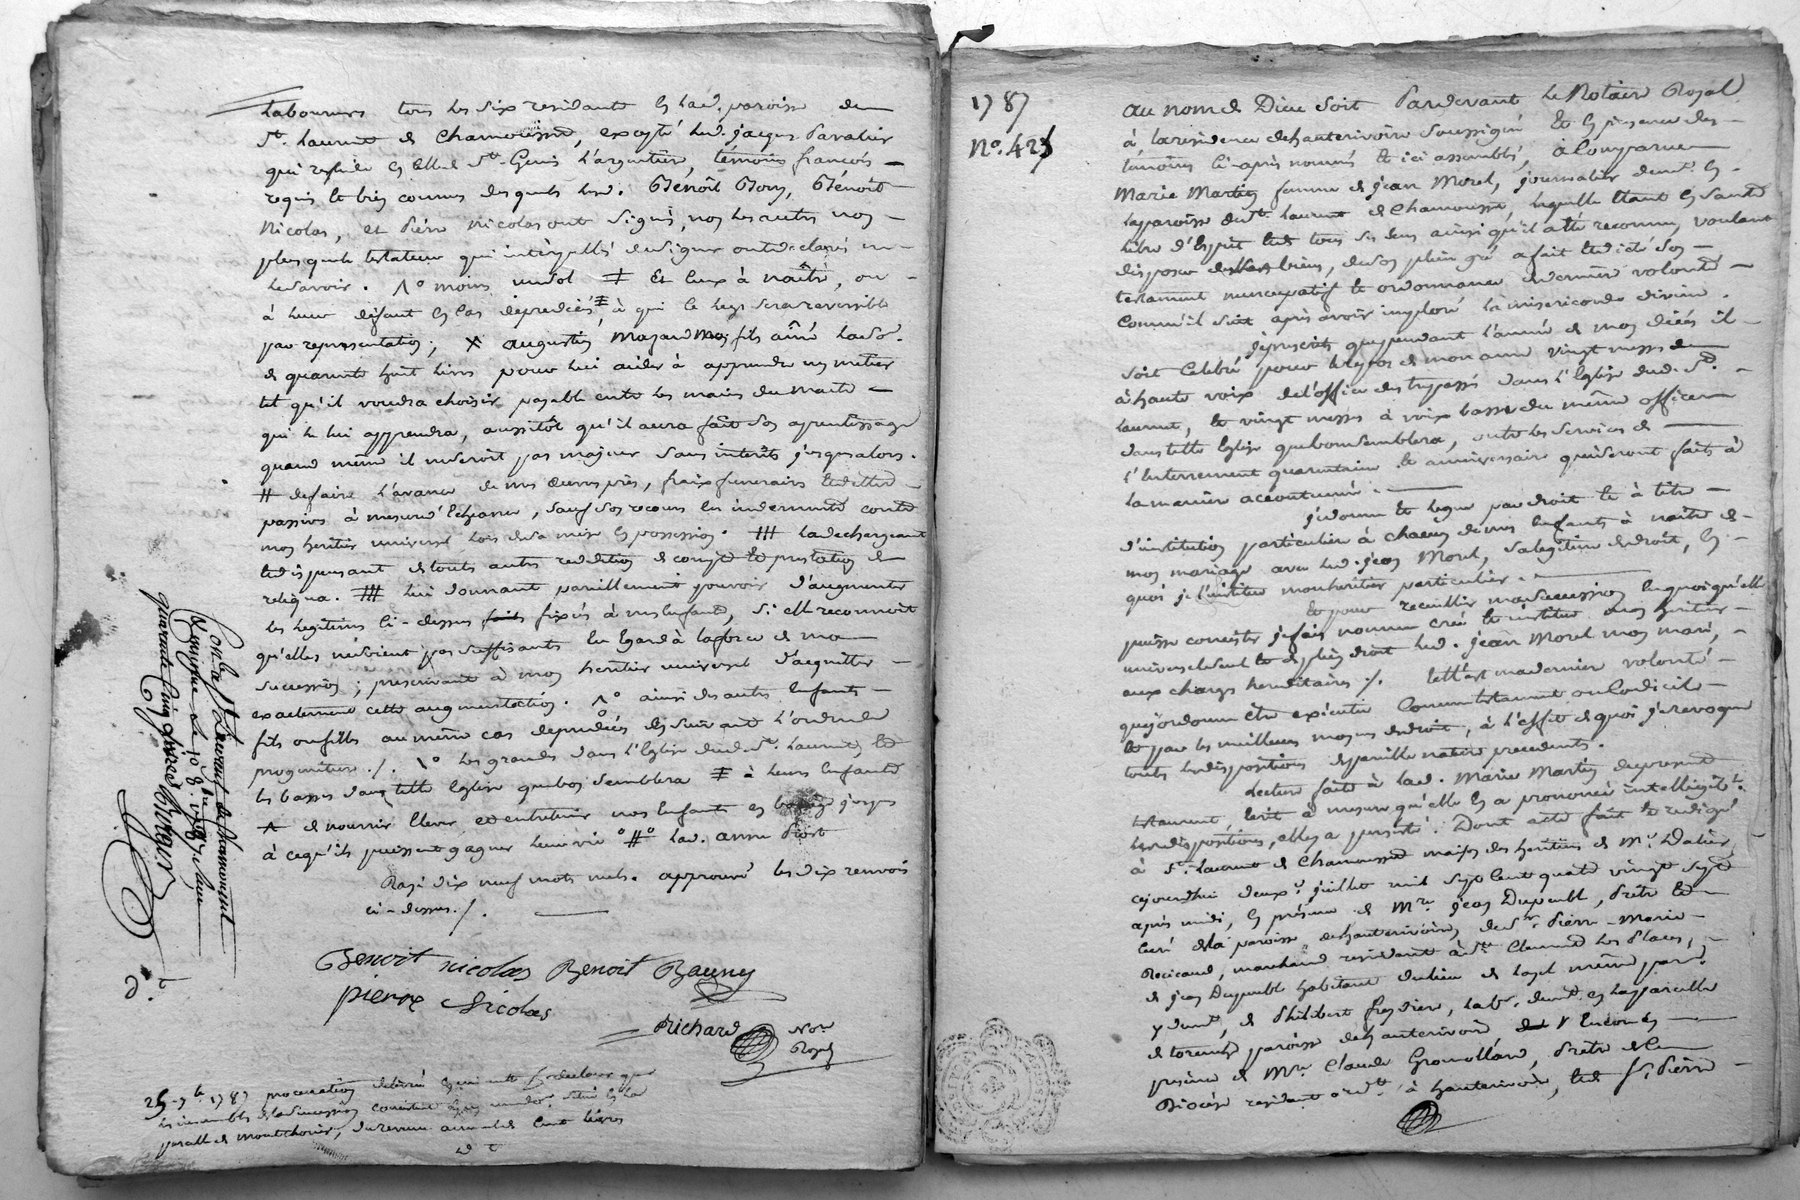 Laboureurs tous les six residants en lad. paroisse de
St. Laurent de Chamousset, excepté led. jacques
qui reside en celle de St. Genis L'argentier, témoins
requis et bien connus desquels led. Bénoît Bony, Bénoît
Nicolas, et Pierre Nicolas ont signés, non les autres non
plus que le testateur qui interpellés de signer ont declarés ne
le savoir. moins et ceux à naître, ou
à leur défaut en cas de predecés à qui le legs sera reversible
par representation; X augustin Mazard mon fils aîné lad. so.
de quarante huit livres pour lui aider à apprendre un metier
tel qu'il voudra choisir payable entre les mains du maitre
qui le lui apprendra, aussitôt qu'il aura fait son aprentissage
quand même il ne seroit pas majeur sans interêts jusqu'alors.
# de faire l'avance de mes oeuvres pies, fraix funeraires et dettes
passives à mesure d'echeance, sauf son recours en indemnité contre
mon heritier universel lors de sa mise en possession. la dechargeant
et dispensant de toute autre reddition de compte et prestation de
reliqua. lui donnant pareillement pouvoir d'augmenter
les legitimes ci-dessus fixés à mes enfants, si elle reconnoit
qu'elles ne soient pas suffisantes eu egard à la force de ma
succession; prescrivant à mon heritier universel d'acquitter
exactement cette augmentation. ainsi des autres enfants
fils ou filles au même cas de predecés en suivant l'ordre de
progeniture ./. les grandes dans l'eglise dud. St. Laurent, et
les basses dans telle eglise que bon semblera à leurs enfants
de nourrir elever et entretenir nos enfants jusques
à ce qu'ils puissent gagner leur vie lad. anne
Rayé dix neuf mots nuls. approuvé les dix renvois
ci-dessus ./.
Benoit nicolas Benoit Bauny
pierre Nicolas
Richard Nore
Royal
25 7bre 1787
la succession
paroisse de montrhonis, du revenu annuel de cent livres
Con.lé a St Laurent de Chamousset
Le 10 1787
quarante cinq
1787
No. 423
au nom de Dieu soit Pardevant le Notaire Royal
à la residence de hauterivoire soussigné et en presence des
temoins ci-après nommés et ici assemblés, a Comparue
Marie Martin femme de jean Morel, journalier en
la paroisse dud. St. Laurent de Chamousset, laquelle etant en santé
libre d'esprit et de tous ses sens ainsi qu'il a été reconnu, voulant
disposer de ses biens, de son plein gré a fait et dicté son
testament nuncupatif et ordonnance de derniere volonté
comme il suit après avoir imploré la misericorde divine.
je prescrits que pendant l'année de mon décés il
soit celebré pour le repos de mon ame vingt messes
à haute voix de l'office des trepassés dans l'eglise dud. St.
laurent, et vingt messes à voix basse du même office
dans telle eglise que bon semblera, outre les services de
l'enterrement quarantaine et anniversaire qui seront faits à
la maniere accoutumée.
je donne et legue par droit et à titre
d'institution particuliere à chacun de mes enfants à naître de
mon mariage avec led. jean Morel, sa legitime de droit, en
quoi je l'institue mon heritier particulier.
et pour recueillir ma succession en quoi qu'elle
puisse consister je fais nomme crée et institue mon heritier
universel seul et de plein droit led. jean Morel mon mari,
aux charges hereditaires ./. telle est ma derniere volonté
que j'ordonne être executée comme testament ou codicile
et par les meilleurs moyens de droit, à l'effet de quoi je revoque
toutes les dispositions de pareille nature precedentes.
Lecture faite à lad. Marie Martin du present
testament, ecrit à mesure qu'elle en a prononcé intelligiblt.
les dispositions, elle y a persisté. Dont acte fait et redigé
à St. Laurent de Chamousset maison des heritiers de Mr. Dalier,
cejourdhui deux juillet mil sept cent quatre vingt sept
après midi, en presence de Mre. jean Dupeuble, Prêtre et
curé de la paroisse de hauterivoire, de Sr. Pierre-Marie
marchand residant à Ste. Clement les Places,
de jean Dupeuble habitant du lieu de
de Philibert laber.
paroisse de hauterivoire
presence de Mre. Claude Prêtre de ce
Diocèse residant à hauterivoire, et de Sr. Pierre